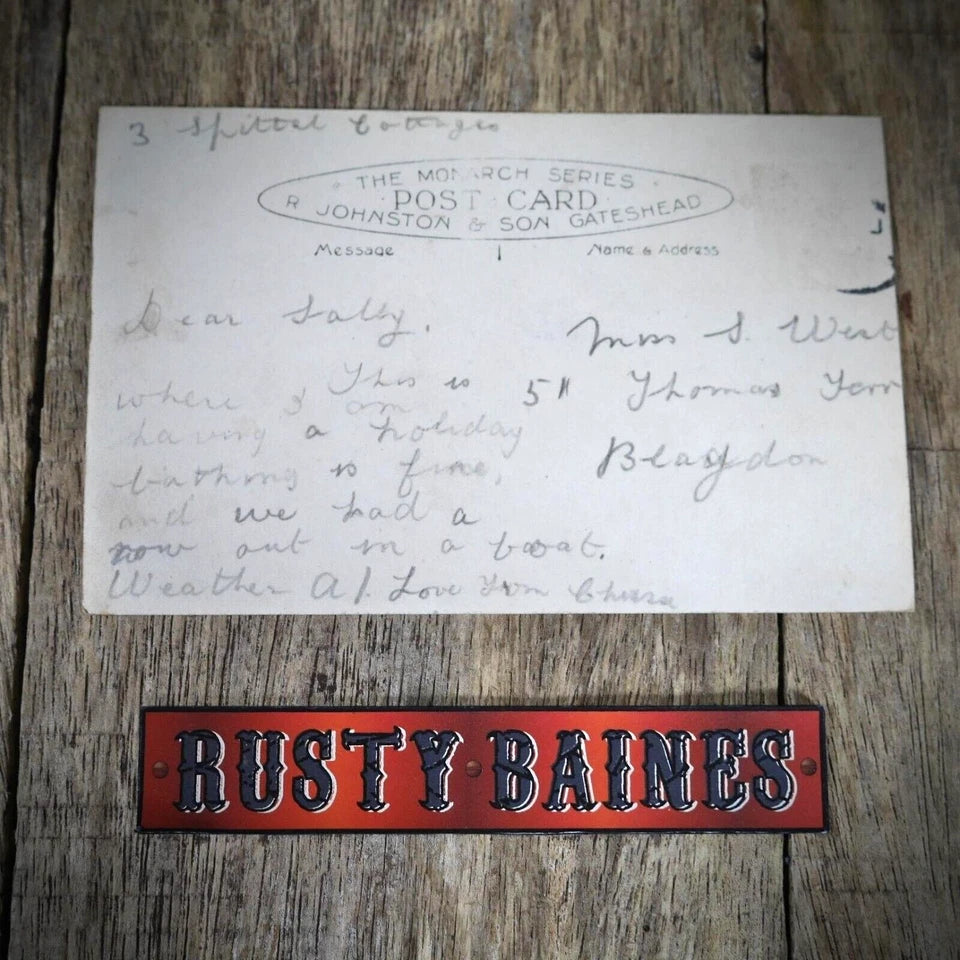 3 Spittal Cottages
THE MONARCH SERIES
POST CARD
R JOHNSTON & SON GATESHEAD
Message
Name & Address
Dear Sally,
This is
where I am
having a holiday
bathing is fine,
and we had a
row out in a boat.
Weather A1. Love from
Miss S. West
51 Thomas Terr
Blaydon
RUSTY BAINES